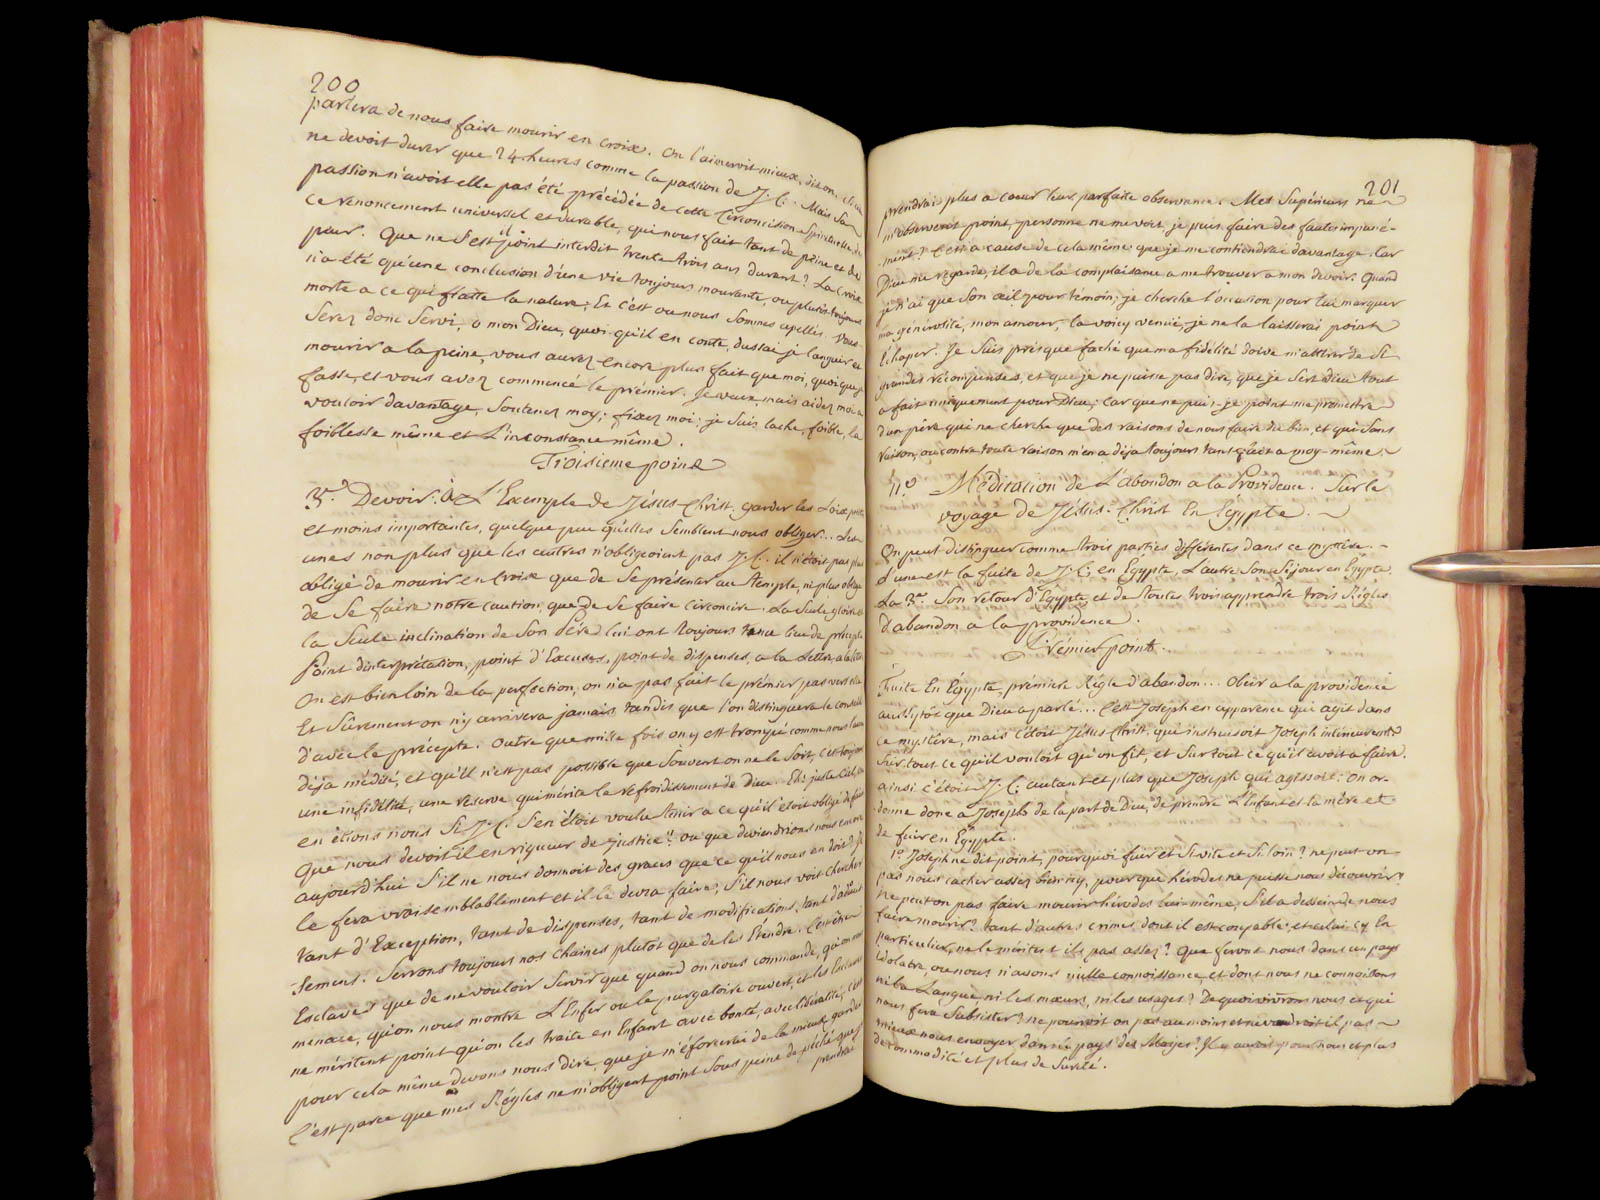 200
parlera de nous faire mourir en croix. On l'aimeroit mieux, dit on, si elle
ne devoit durer que 24 heures comme la passion de J. C. Mais sa
passion n'avoit elle pas été précédée de cette Circoncision Spirituelle, de
ce renoncement universel et durable, qui nous fait tant de peine et de
peur. Que ne s'est il point interdit trente trois ans durant? La Croix
n'a été qu'une conclusion d'une vie toujours mourante, ou plustôt toujours
morte a ce qui flatte la nature; Et c'est ou nous sommes apellés. Vous
Serez donc Servi, o mon Dieu, quoi qu'il en conte, dussai je languir et
mourir a la peine, vous aurez encore plus fait que moi, quoique je
fasse, et vous avez commencé le prémier. Je veux, mais aidez moi a
vouloir davantage, Soutenez moy; fixez moi; je Suis lache, foible, la
foiblesse même et L'inconstance même.
Troisieme point
3e. Devoir. à L'Exemple de Jésus Christ garder les Loix petites
et moins importantes, quelque peu qu'elles Semblent nous obliger... Les
unes non plus que les autres n'obligeoient pas J. C. il n'étoit pas plus
obligé de mourir en Croix que de Se présenter au temple, ni plus obligé
de Se faire notre caution, que de Se faire circoncire. La Seule gloire et
la Seule inclination de Son Père lui ont toujours tenu lieu de précepte
Point d'interprétation, point d'Excuses, point de dispenses, a la Lettre, a la lettre
On est bien loin de la perfection, on n'a pas fait le prémier pas vers elle
Et Sûrement on n'y arrivera jamais, tandis que l'on distinguera le conseil
d'avec le précepte. Outre que mille fois on y est trompé comme nous l'avons
déja médité, et qu'il n'est pas possible que Souvent on ne le Soit, c'est toujours
une infidélité, une réserve qui mérite le refroidissement de Dieu. Eh! juste Ciel, ou
en étions nous Si J. C. S'en étoit voulu tenir a ce qu'il étoit obligé de faire
Que nous devoit il en rigueur de justice? ou que deviendrions nous encore
aujourd'hui S'il ne nous donnoit des graces que ce qu'il nous en doit? Il
le fera vraisemblablement et il le devra faire, S'il nous voit chercher
tant d'Exception, tant de dispenses, tant de modifications, tant d'adoucis-
sement. Serrons toujours nos chaines plutôt que de les Etendre. C'est être
Esclave que de ne vouloir Servir que quand on nous commande, qu'on nous
menace, qu'on nous montre L'Enfer ou le purgatoire ouvert, et les Esclaves
ne méritent point qu'on les traite en Enfant avec bonté, avec libéralité; C'est
pour cela même devons nous dire, que je m'éforcerai de la mieux garder
C'est parce que mes Régles ne m'obligent point sous peine de péché que j'y
prendrai
201
prendrai plus a coeur leur parfaite observance. Mes Supérieurs ne
m'observeront point, personne ne me voit, je puis faire des fautes impuné-
ment? C'est a cause de cela même que je me contiendrai davantage. Car
Dieu me regarde, il a de la complaisance a me trouver a mon devoir. Quand
je n'ai que Son œil pour témoin; je cherche l'occasion pour lui marquer
ma générosité, mon amour, la voicy venüe, je ne la laisserai point
Echaper. Je Suis presque faché que ma fidélité doive m'attirer de Si
grandes récompenses, et que je ne puisse pas dire, que je Sers Dieu tout
a fait uniquement pour Dieu; Car que ne puis-je point me promettre
d'un père qui ne cherche que des raisons de nous faire du bien, et qui Sans
raison, ou contre toute raison m'en a déja toujours tant fait a moy-même.
11.e Méditation de L'abandon a la Providence. Sur le
voyage de Jésus-Christ En Egypte.
On peut distinguer comme trois parties différentes dans ce mystère.
L'une est la fuite de J. C. en Egypte, L'autre Son Séjour en Egypte
La 3e Son retour d'Egypte, et de toutes trois apprendre trois Régles
d'abandon a la providence.
Prémier point.
Fuite En Egypte, prémiere Régle d'abandon... Obéir a la providence
aussytôt que Dieu a parlé... C'est Joseph en apparence qui agit dans
ce mystère, mais c'étoit Jésus Christ qui instruisoit Joseph intérieurement
Sur tout ce qu'il vouloit qu'on fit, et Sur tout ce qu'il avoit a faire.
ainsi c'étoit J. C. autant et plus que Joseph qui agissoit. on or-
donne donc a Joseph de la part de Dieu, de prendre L'Enfant et la mère et
de fuir en Egypte.
1.o Joseph ne dit point, pourquoi fuir et Si vite et Si loin? ne peut-on
pas nous cacher assez bien icy, pour que hérodes ne puisse nous découvrir?
Ne peut on pas faire mourir hérodes lui-même, S'il a dessein de nous
faire mourir? tant d'autres crimes dont il est coupable, et celui cy En
particulier, ne le méritent ils pas assez? Que feront nous dans un pays
idolatre, ou nous n'avons nulle connoissance, et dont nous ne connoissons
ni la Langue, ni les mœurs, ni les usages? De quoi vivrons nous et qui
nous fera Subsister? ne pourroit on pas au moins et ne vaudroit il pas
mieux nous envoyer dans le pays des Mages? Il y auroit pour nous et plus
de commodité et plus de Sureté.